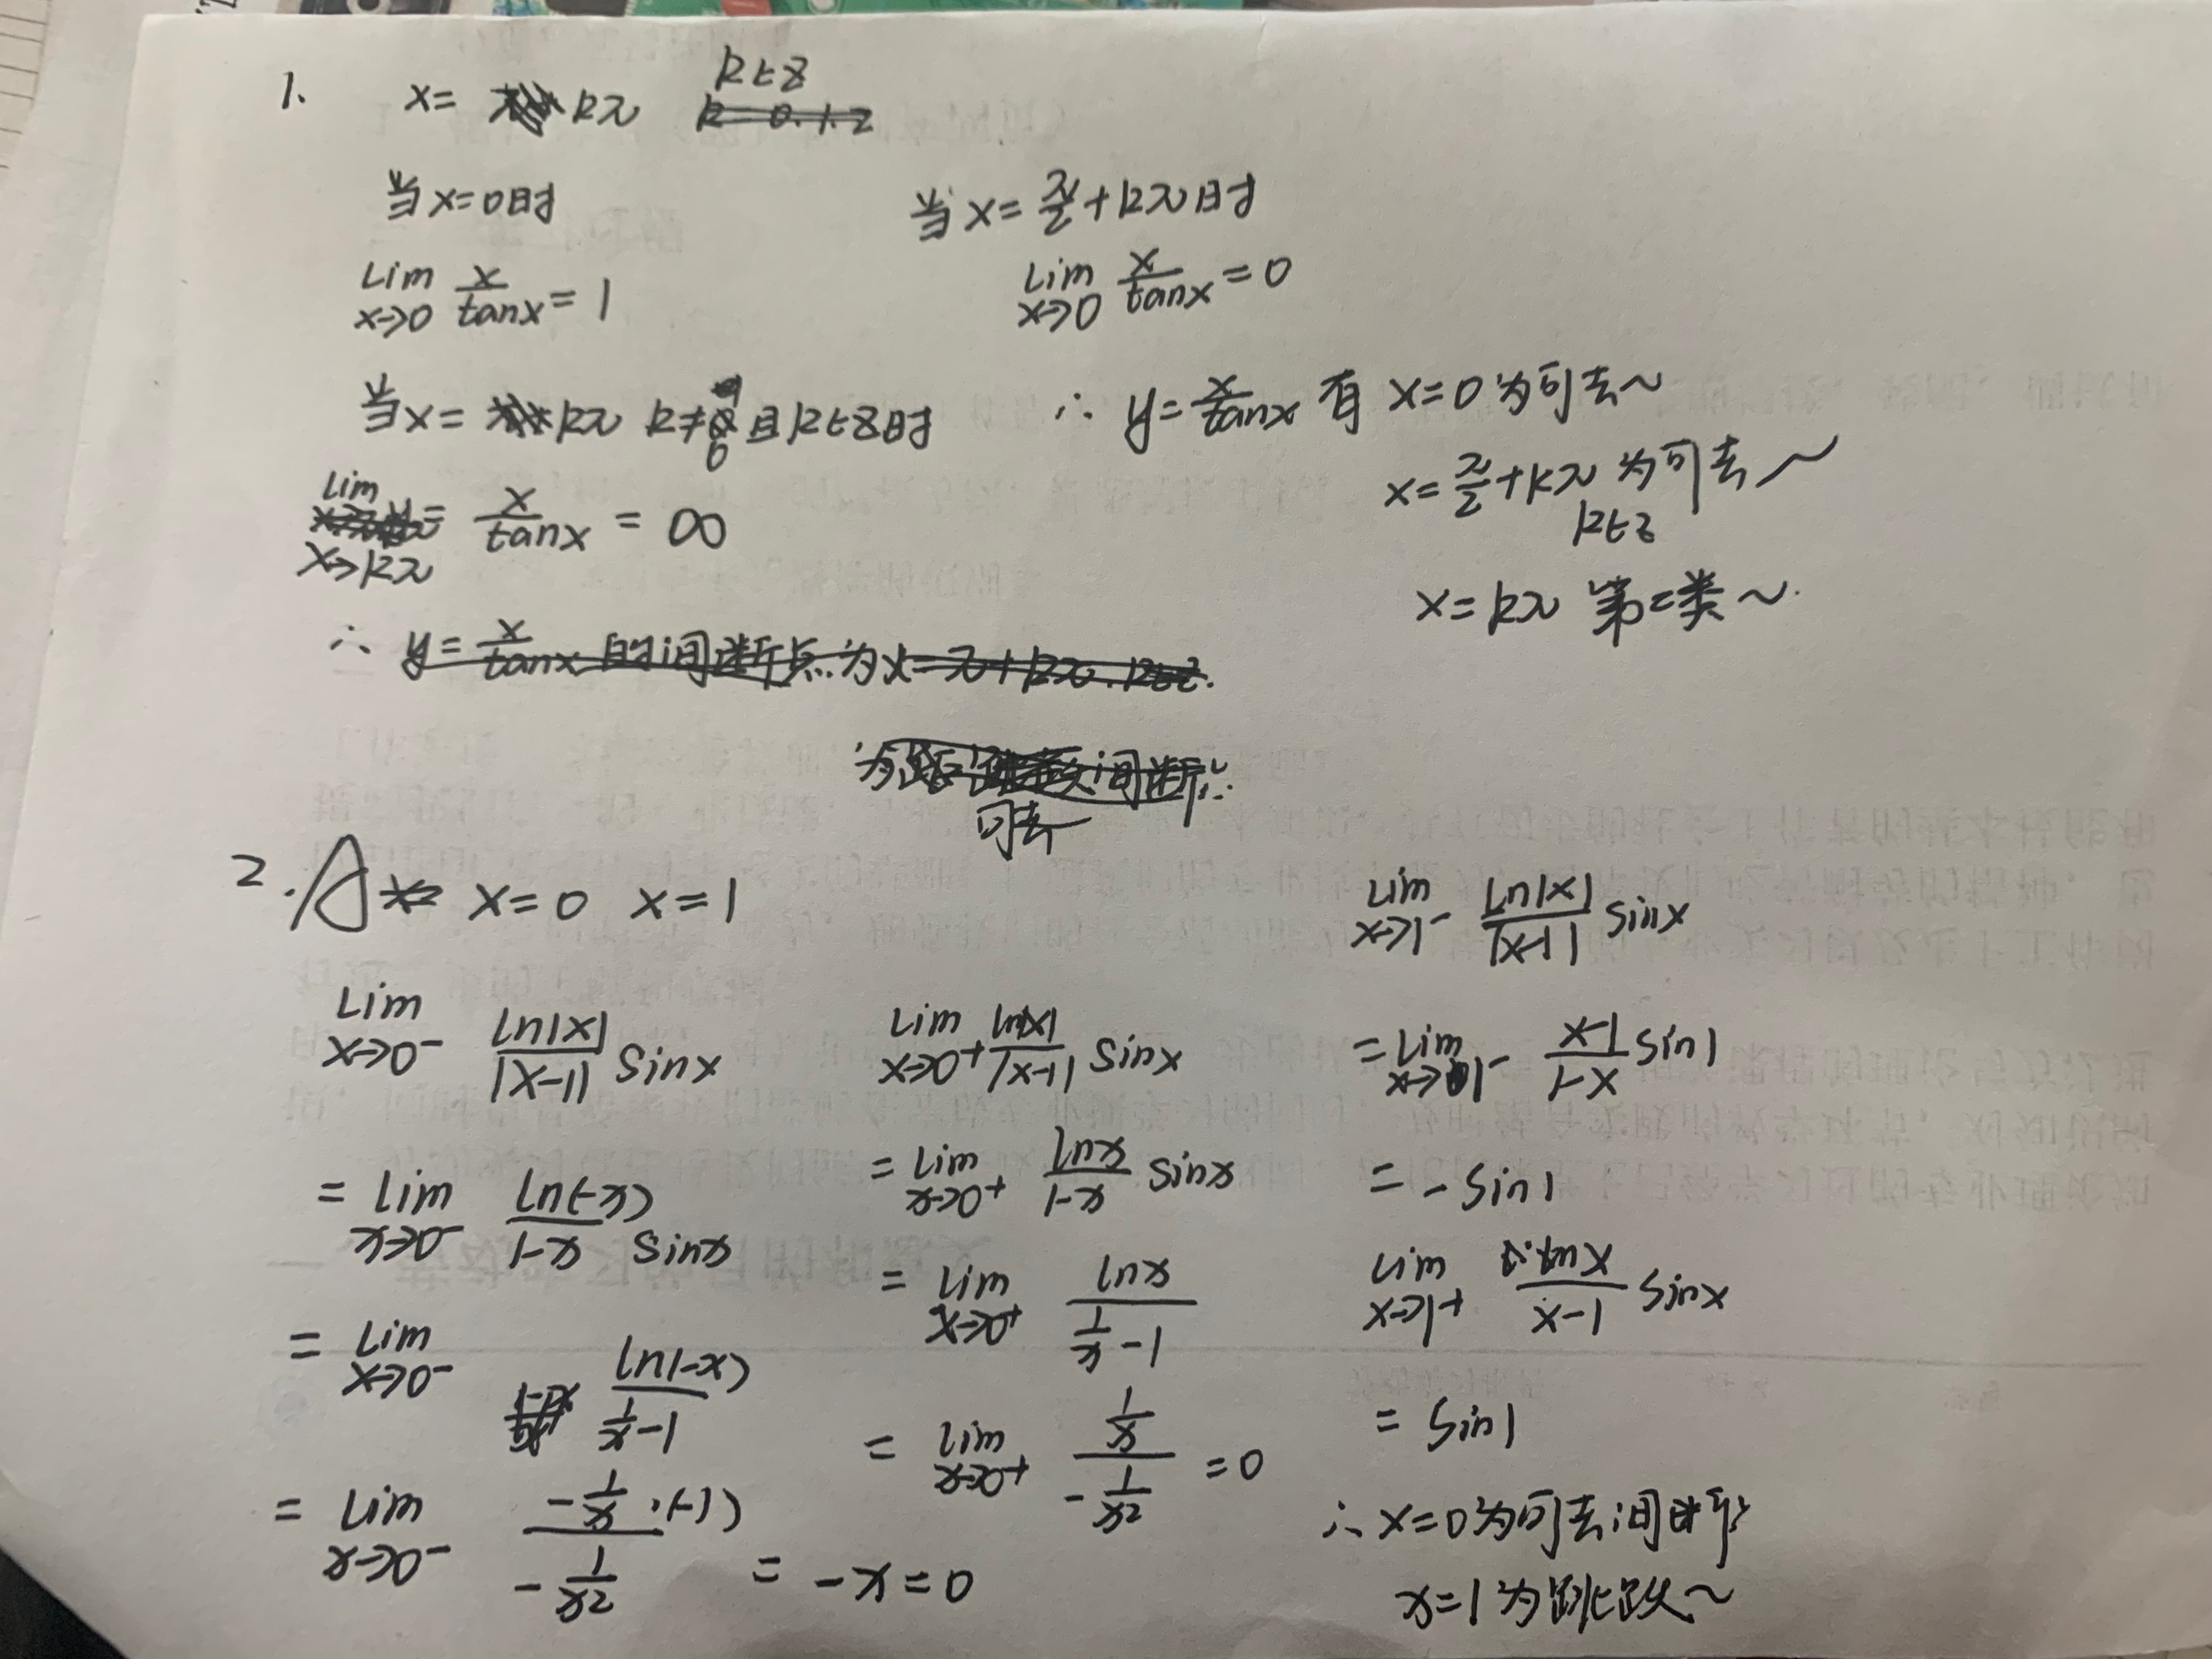 1. x= kπ k∈Z
k=0.1.2
当x=0时
lim x→0 x/tanx = 1
当x= kπ k≠0 且k∈Z时
lim x→kπ x/tanx = ∞
∴ y= x/tanx 的间断点为x=π+kπ.k∈Z.
可去
当x= π/2+kπ时
lim x→0 x/tanx = 0
∴ y= x/tanx 有 x=0为可去~
x= π/2+kπ 为可去~
k∈Z
x=kπ 第二类~.
2. A x=0 x=1
lim x→0⁻ ln|x|/|x-1| sinx
= lim x→0⁻ ln(-x)/1-x sinx
= lim x→0⁻ ln(-x)/(1/x -1)
= lim x→0⁻ (-1/x ·(-1))/(-1/x²) = -x=0
lim x→0+ ln|x|/|x-1| sinx
= lim x→0+ lnx/1-x sinx
= lim x→0+ lnx/(1/x -1)
= lim x→0+ (1/x)/(-1/x²) =0
lim x→1⁻ ln|x|/|x-1| sinx
= lim x→1⁻ x-1/1-x sin1
= -sin1
lim x→1+ lnx/x-1 sinx
= sin1
∴ x=0为可去间断
x=1为跳跃~